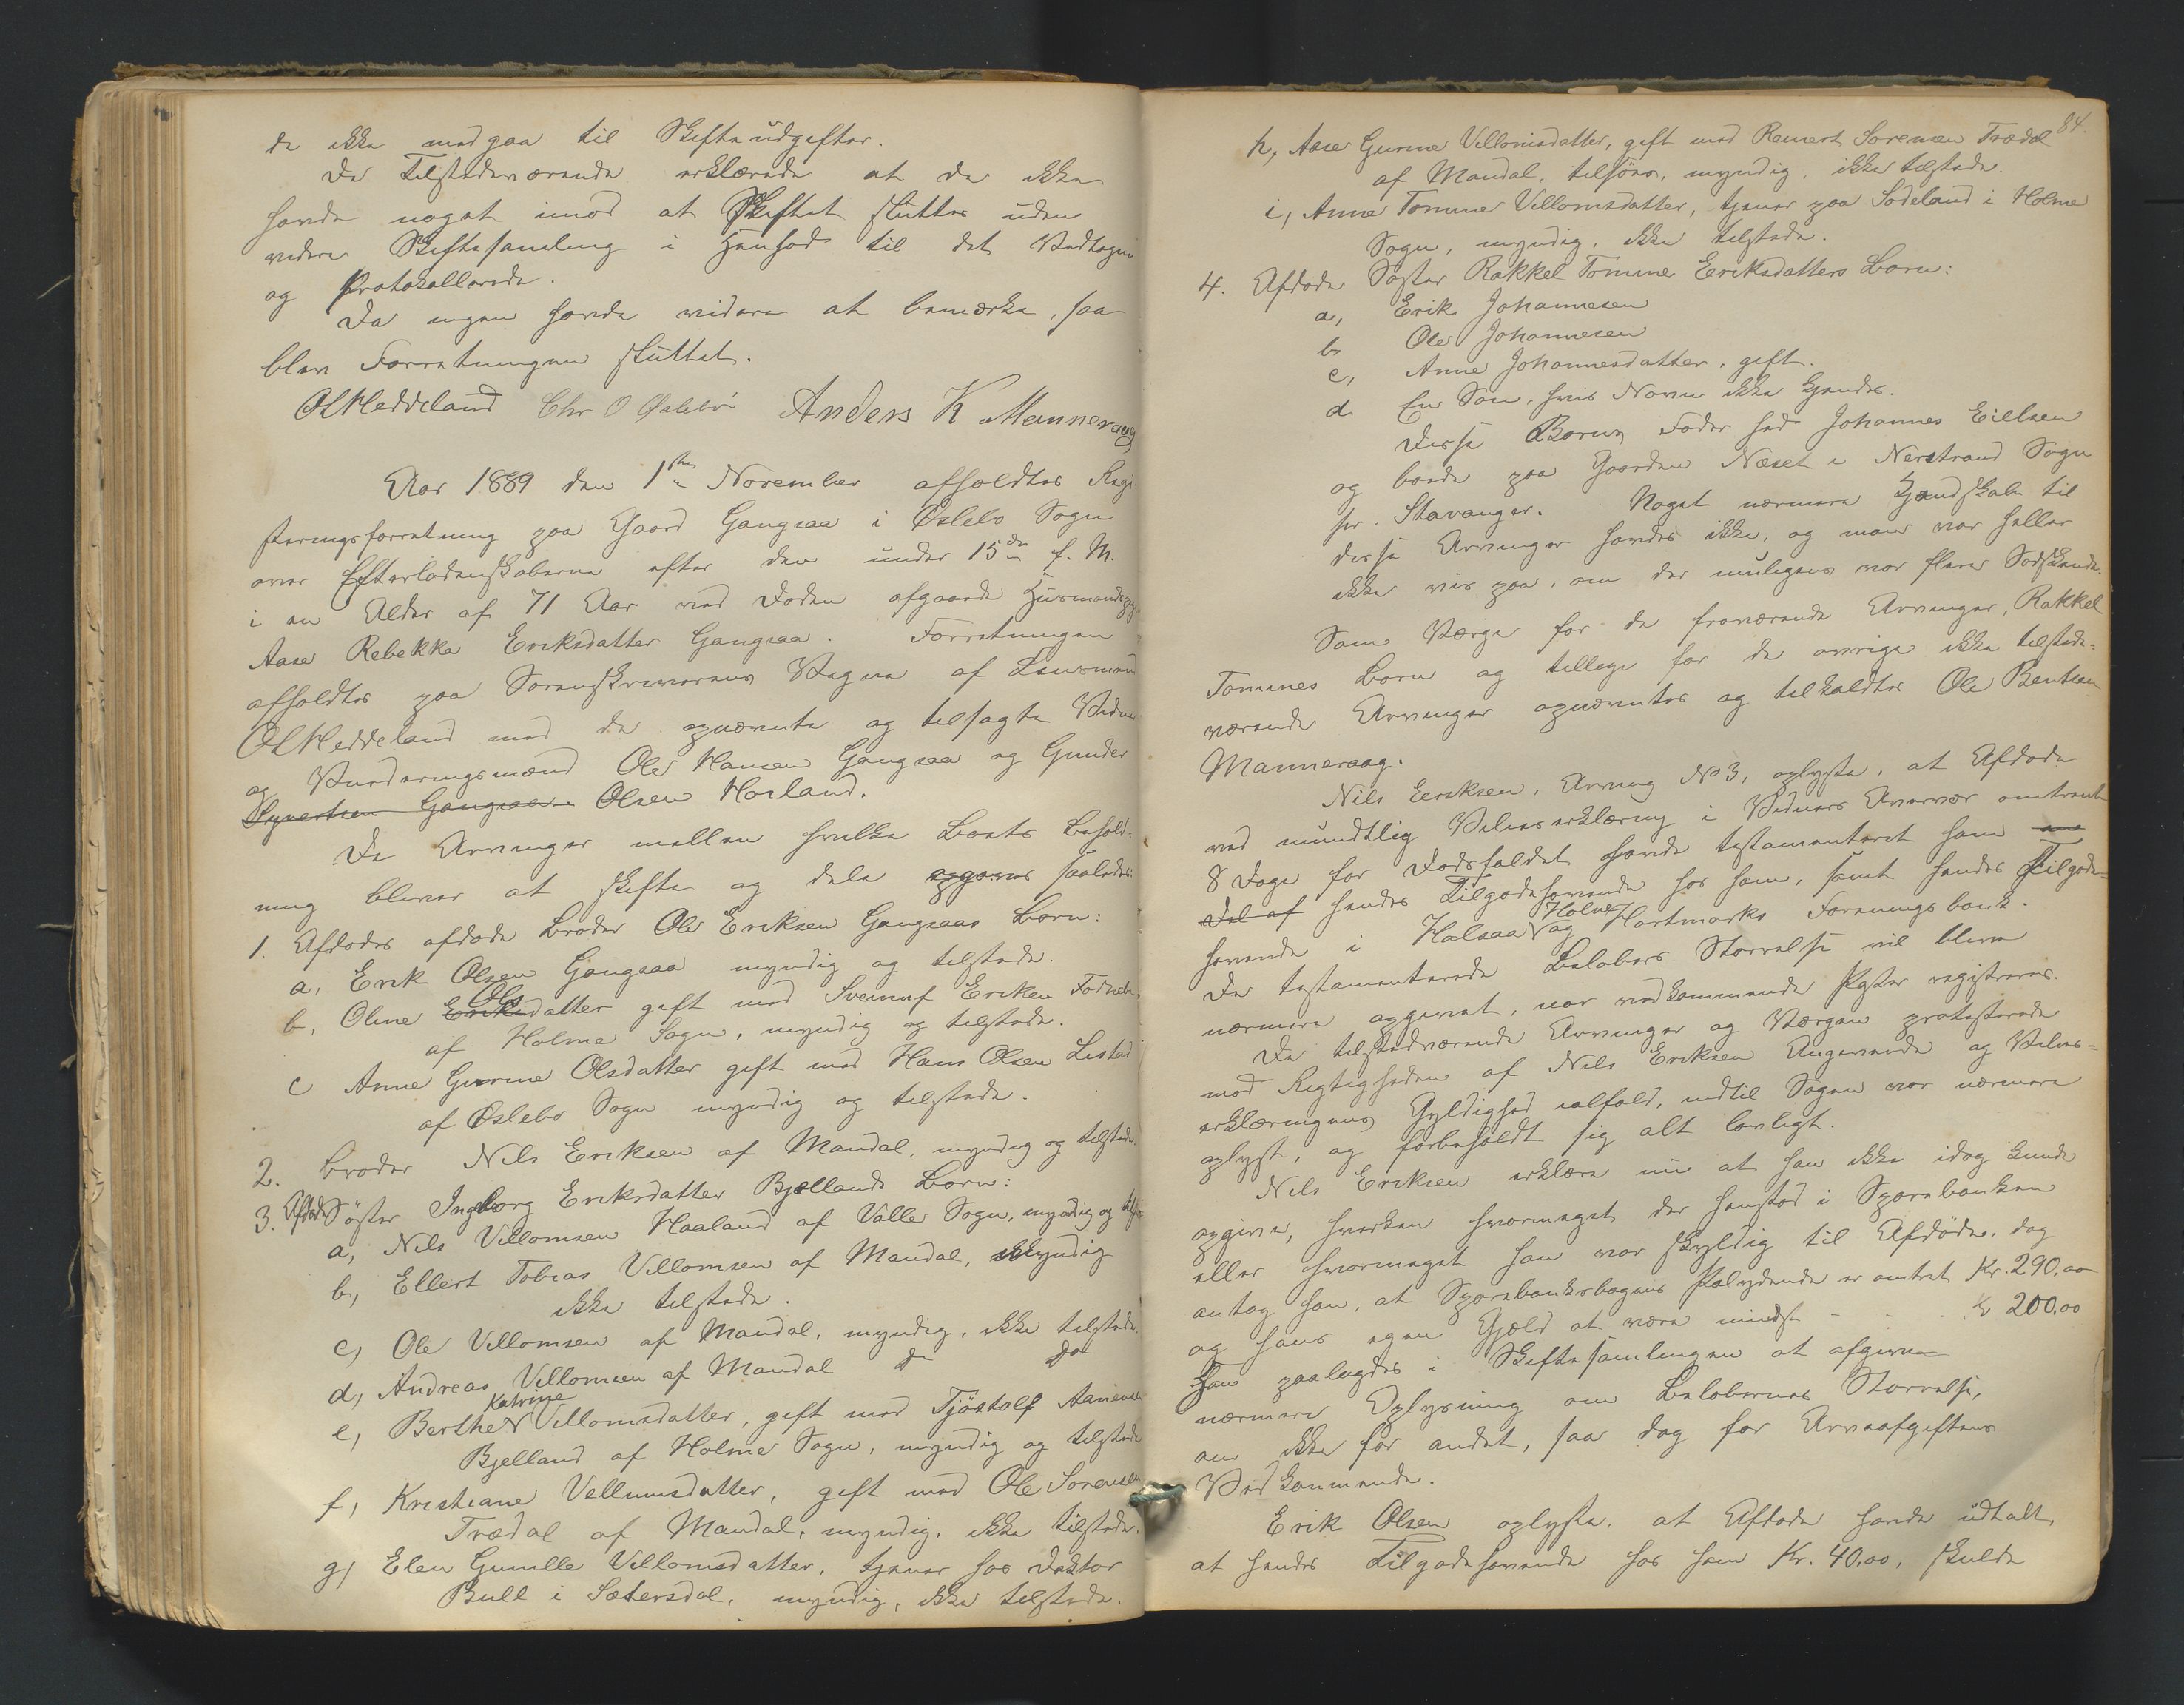 de ikke medgaa til Skifteudgifter.
De Tilstedeværende erklærede at de ikke
havde noget imod at Skiftet sluttes uden
videre Skiftesamling i Henhold til det Vedtagne
og Protokollerede.
Da ingen havde videre at bemærke, saa
blev Forretningen sluttet.
OHHeddeland Chr O Øslebö Anders K Manneraag
Aar 1889 den 1ste November afholdtes Regi-
steringsforretning paa Gaard Gangsaa i Øslebø Sogn
over Efterladenskaberne efter den under 15de f. M.
i en Alder af 71 Aar ved Døden afgaaede Husmandspige
Aase Rebekka Eriksdatter Gangsaa. Forretningen
afholdtes paa Sorenskriverens Vegne af Lensmand
OHHeddeland med de opnævnte og tilsagte Vidner
og Vurderingsmænd Ole Hansen Gangsaa og Gunder
Syvertsen Gangsaa Olsen Horland.
De Arvinger mellem hvilke Boets Behold-
ning bliver at skifte og dele opgaves saaledes:
1. Afdødes afdøde Broder Ole Eriksen Gangsaas Børn:
a, Erik Olsen Gangsaa myndig og tilstede.
b, Oline Eriksdatter Ols gift med Sveinuf Eriksen
af Holme Sogn, myndig og tilstede.
c Anne Gurine Olsdatter gift med Hans Olsen Listad
af Øslebø Sogn myndig og tilstede.
2. Broder Nils Eriksen af Mandal, myndig og tilstede.
3. Afdøde Søster Ingeborg Eriksdatter Bjellands Børn:
a, Nils Villomsen Haaland af Valle Sogn, myndig og
b, Ellert Tobias Villomsen af Mandal, myndig
ikke tilstede.
c, Ole Villomsen af Mandal, myndig, ikke tilstede.
d, Andreas Villomsen af Mandal do do
e, Berthe Katrine Villomsdatter, gift med Tjöstolf Aanensen
Bjelland af Holme Sogn, myndig og tilstede
f, Kristiane Vellumsdatter, gift med Ole Sorensen
Trædal af Mandal, myndig, ikke tilstede.
g, Elen Gunille Villomsdatter, tjener hos Doktor
Bull i Sætersdal, myndig, ikke tilstede.
84.
h, Aase Gurine Villomsdatter, gift med Reinert Sorensen Trædal
af Mandal, tilsöes, myndig, ikke tilstede.
i, Anne Tomine Villomsdatter, tjener paa Sødeland i Holme
Sogn, myndig, ikke tilstede.
4. Afdøde Søster Rakkel Tomine Eriksdatters Børn:
a, Erik Johannesen
b Ole Johannesen
c, Anne Johannesdatter, gift.
d. En Søn, hvis Navn ikke kjendes.
Disse Børns Fader hed Johannes Eillsen
og boede paa Gaarden Næset i Nerstrand Sogn
pr. Stavanger. Noget nærmere Kjendskab til
disse Arvinger havdes ikke, og man var heller
ikke vis paa, om der muligens var flere Sødskende.
Som Værge for de fraværende Arvinger, Rakkel
Tomines Børn og tillige for de øvrige ikke tilstede-
værende Arvinger opnævntes og tilkaldtes Ole Bentsen
Manneraag.
Nils Eriksen, Arving No 3, oplyste, at Afdøde
ved mundtlig Viljeserklæring i Vidners Overvær omtrent
8 Dage før Dødsfaldet havde testamenteret ham en
Del af hendes Tilgodehavende hos ham, samt hendes Tilgode-
havende i Halsaa Holme og Hartmarks Foreningsbank.
De testamenterede Beløbers Størrelse vil blive
nærmere opgivet, naar vedkommende Poster registreres.
De tilstedeværende Arvinger og Værgen protesterede
mod Rigtigheden af Nils Eriksen Angivende og Viljes-
erklæringens Gyldighed ialfald, indtil Sagen var nærmere
oplyst, og forbeholdt sig alt lovligt.
Nils Eriksen erklære nu at han ikke idag kunde
opgive, hverken hvormeget der henstod i Sparebanken
eller hvormeget han var skyldig til Afdöde, dog
antog han, at Sparebanksbogens Paalydende er omtret Kr. 290,00
og hans egen Gjæld at være mindst - - - " 200,00
Han paalagdes i Skiftesamlingen at afgive
nærmere Oplysning om Beløbernes Størrelse,
om ikke for andet, saa dog for Arveafgiftens
Vedkommende.
Erik Olsen oplyste, at Afdøde havde udtalt,
at hendes Tilgodehavende hos ham Kr. 40,00, skulde